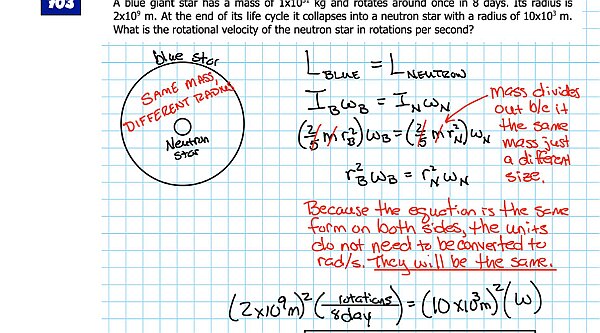 103
A blue giant star has a mass of 1x10³¹ kg and rotates around once in 8 days. Its radius is
2x10⁹ m. At the end of its life cycle it collapses into a neutron star with a radius of 10x10³ m.
What is the rotational velocity of the neutron star in rotations per second?
blue star
SAME MASS,
DIFFERENT RADIUS
Neutron
star
L_BLUE = L_NEUTRON
I_B ω_B = I_N ω_N
(2/5 m r_B²) ω_B = (2/5 m r_N²) ω_N
r_B² ω_B = r_N² ω_N
mass divides
out b/c it
the same
mass just
a different
size.
Because the equation is the same
form on both sides, the units
do not need to be converted to
rad/s. They will be the same.
(2x10⁹m)² (rotations/8day) = (10x10³m)² (ω)